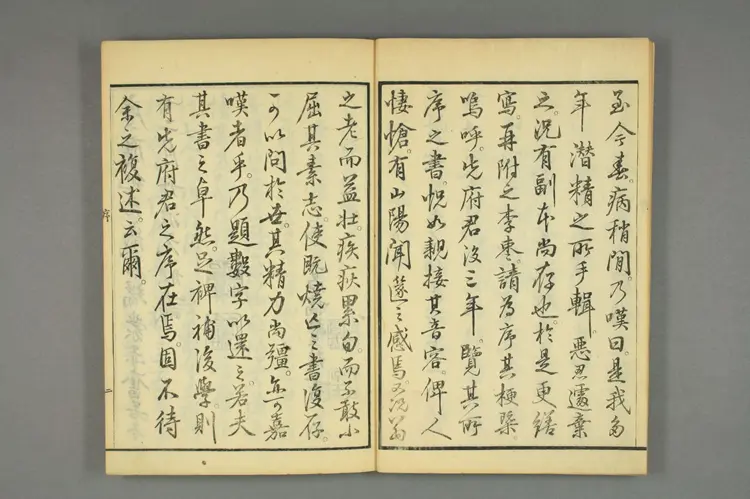 至今春。病稍間。乃嘆曰。是我多
年潛精之所手輯。惡忍遽棄
之。況有副本尚存也。於是更繕
寫。再附之李棗。請為序其梗槩。
嗚呼。先府君沒三年。覽其所
序之書。怳如親接其音容。俾人
悽愴。有山陽聞篴之感焉。又況翁
之老而益壯。疾疚累旬。而不敢小
屈其素志。使既燒亡之書復存。
可以問於世。其精力尚彊。亦可嘉
嘆者乎。乃題數字以還之。若夫
其書之卓然。足裨補後學。則
有先府君之序在焉。固不待
余之複述云爾。
序
二